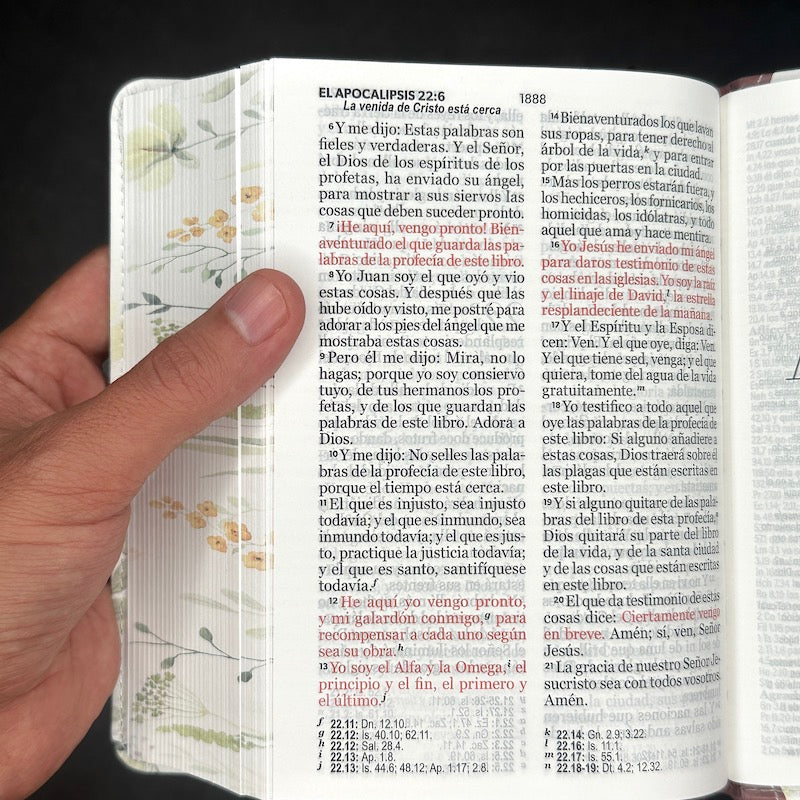 EL APOCALIPSIS 22:6
1888
La venida de Cristo está cerca
6 Y me dijo: Estas palabras son
fieles y verdaderas. Y el Señor,
el Dios de los espíritus de los
profetas, ha enviado su ángel,
para mostrar a sus siervos las
cosas que deben suceder pronto.
7 ¡He aquí, vengo pronto! Bien-
aventurado el que guarda las pa-
labras de la profecía de este libro.
8 Yo Juan soy el que oyó y vio
estas cosas. Y después que las
hube oído y visto, me postré para
adorar a los pies del ángel que me
mostraba estas cosas.
9 Pero él me dijo: Mira, no lo
hagas; porque yo soy consiervo
tuyo, de tus hermanos los pro-
fetas, y de los que guardan las
palabras de este libro. Adora a
Dios.
10 Y me dijo: No selles las pala-
bras de la profecía de este libro,
porque el tiempo está cerca.
11 El que es injusto, sea injusto
todavía; y el que es inmundo, sea
inmundo todavía; y el que es jus-
to, practique la justicia todavía;
y el que es santo, santifíquese
todavía.f
12 He aquí yo vengo pronto,
y mi galardón conmigo,g para
recompensar a cada uno según
sea su obra.h
13 Yo soy el Alfa y la Omega,i el
principio y el fin, el primero y
el último.j
f 22.11: Dn. 12.10.
g 22.12: Is. 40.10; 62.11.
h 22.12: Sal. 28.4.
i 22.13: Ap. 1.8.
j 22.13: Is. 44.6; 48.12; Ap. 1.17; 2.8.
14 Bienaventurados los que lavan
sus ropas, para tener derecho al
árbol de la vida,k y para entrar
por las puertas en la ciudad.
15 Mas los perros estarán fuera, y
los hechiceros, los fornicarios, los
homicidas, los idólatras, y todo
aquel que ama y hace mentira.
16 Yo Jesús he enviado mi ángel
para daros testimonio de estas
cosas en las iglesias. Yo soy la raíz
y el linaje de David,l la estrella
resplandeciente de la mañana.
17 Y el Espíritu y la Esposa di-
cen: Ven. Y el que oye, diga: Ven.
Y el que tiene sed, venga; y el que
quiera, tome del agua de la vida
gratuitamente.m
18 Yo testifico a todo aquel que
oye las palabras de la profecía de
este libro: Si alguno añadiere a
estas cosas, Dios traerá sobre él
las plagas que están escritas en
este libro.
19 Y si alguno quitare de las pala-
bras del libro de esta profecía,n
Dios quitará su parte del libro
de la vida, y de la santa ciudad
y de las cosas que están escritas
en este libro.
20 El que da testimonio de estas
cosas dice: Ciertamente vengo
en breve. Amén; sí, ven, Señor
Jesús.
21 La gracia de nuestro Señor Je-
sucristo sea con todos vosotros.
Amén.
k 22.14: Gn. 2.9; 3.22.
l 22.16: Is. 11.1.
m 22.17: Is. 55.1.
n 22.18-19: Dt. 4.2; 12.32.